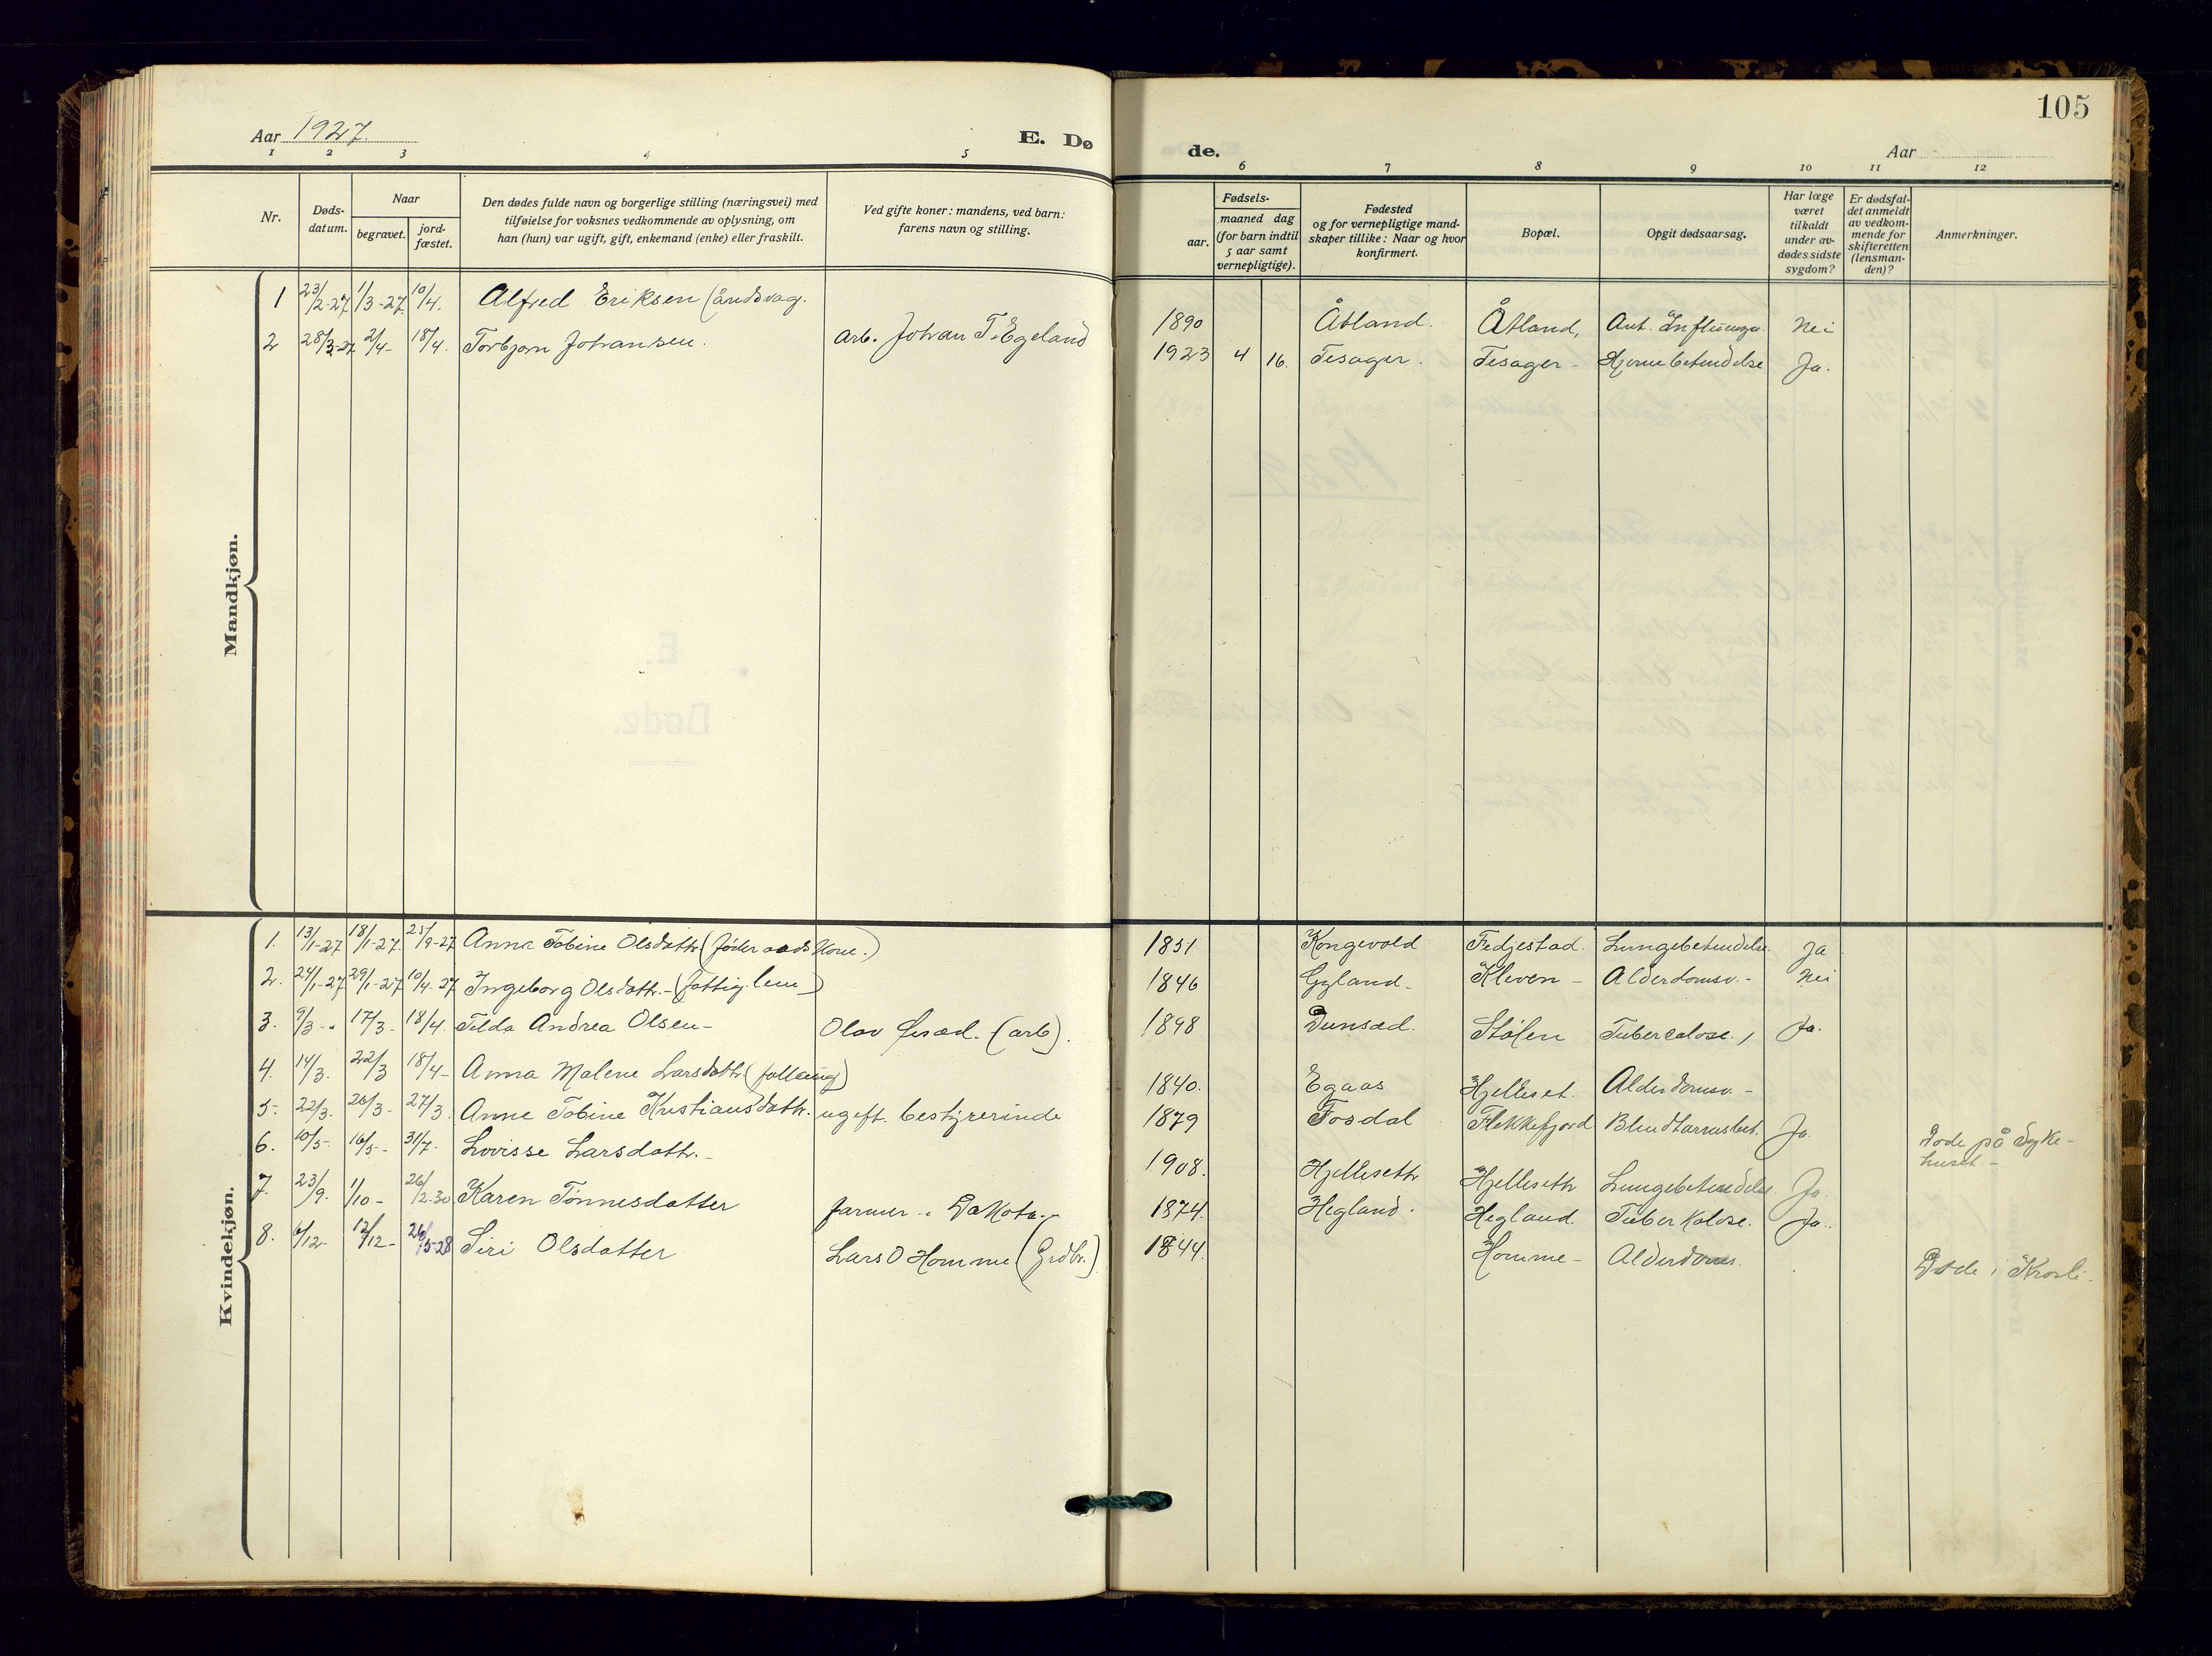 105
Aar 1927. E. Døde. Aar
1 2 3 4 5 6 7 8 9 10 11 12
Nr. Døds-datum. Naar begravet. jord-fæstet. Den dødes fulde navn og borgerlige stilling (næringsvei) med tilføielse for voksnes vedkommende av oplysning, om han (hun) var ugift, gift, enkemand (enke) eller fraskilt. Ved gifte koner: mandens, ved barn: farens navn og stilling. Fødsels- aar. maaned dag (for barn indtil 5 aar samt vernepligtige). Fødested og for vernepligtige mandskaper tillike: Naar og hvor konfirmert. Bopæl. Opgit dødsaarsag. Har læge været tilkaldt under avdødes sidste sygdom? Er dødsfaldet anmeldt av vedkommende for skifteretten (lensmanden)? Anmerkninger.
Mandkjøn.
1 23/2-27 1/3-27 10/4. Alfred Eriksen (åndsvag. 1890 Åtland. Åtland, Ant. Influenza. Nei
2 28/3-27 2/4- 18/4. Torbjørn Johansen. Arb. Johan T. Egeland 1923 4 16. Tesager. Tesager- Hjernebetendelse Ja.
Kvindekjøn.
1. 13/1-27 18/1-27. 25/9-27 Anna Tobine Olsdattr. (føderaadskone.) 1851 Kongevold Fedjestad. Lungebetendelse. Ja
2. 24/1-27 29/1-27 10/4-27 Ingeborg Olsdattr.- (fattiglem) 1846 Gyland- Kleven- Alderdomsv.- Nei
3. 9/3-" 17/3- 18/4. Tilda Andrea Olsen- Olav (arb). 1898 Dunsæd. Stølen Tuberculose. Ja.
4. 14/3. 22/3 18/4- Anna Malene Larsdattr. 1840. Egaas Hjelleset. Alderdomsv.-
5- 22/3. 26/3- 27/3. Anne Tobine Kristiansdattr. ugift. bestyrerinde 1879 Fosdal Flekkefjord Blindtarmsbet. Ja. Døde på Sykehuset-
6. 10/5- 16/5- 31/7. Lovisse Larsdattr.- 1908. Hjelleseth Hjelleseth Lungebetendelse. Ja
7. 23/9. 1/10- 26/2-30 Karen Tønnesdatter farmer. Dakota.- 1874. Hegland. Hegland. Tuberkulose. Ja.
8. 6/12- 12/12- 26/5-28 Siri Olsdatter Lars O Homme (Grdbr.) 1844. Homme- Alderdoms. Døde i